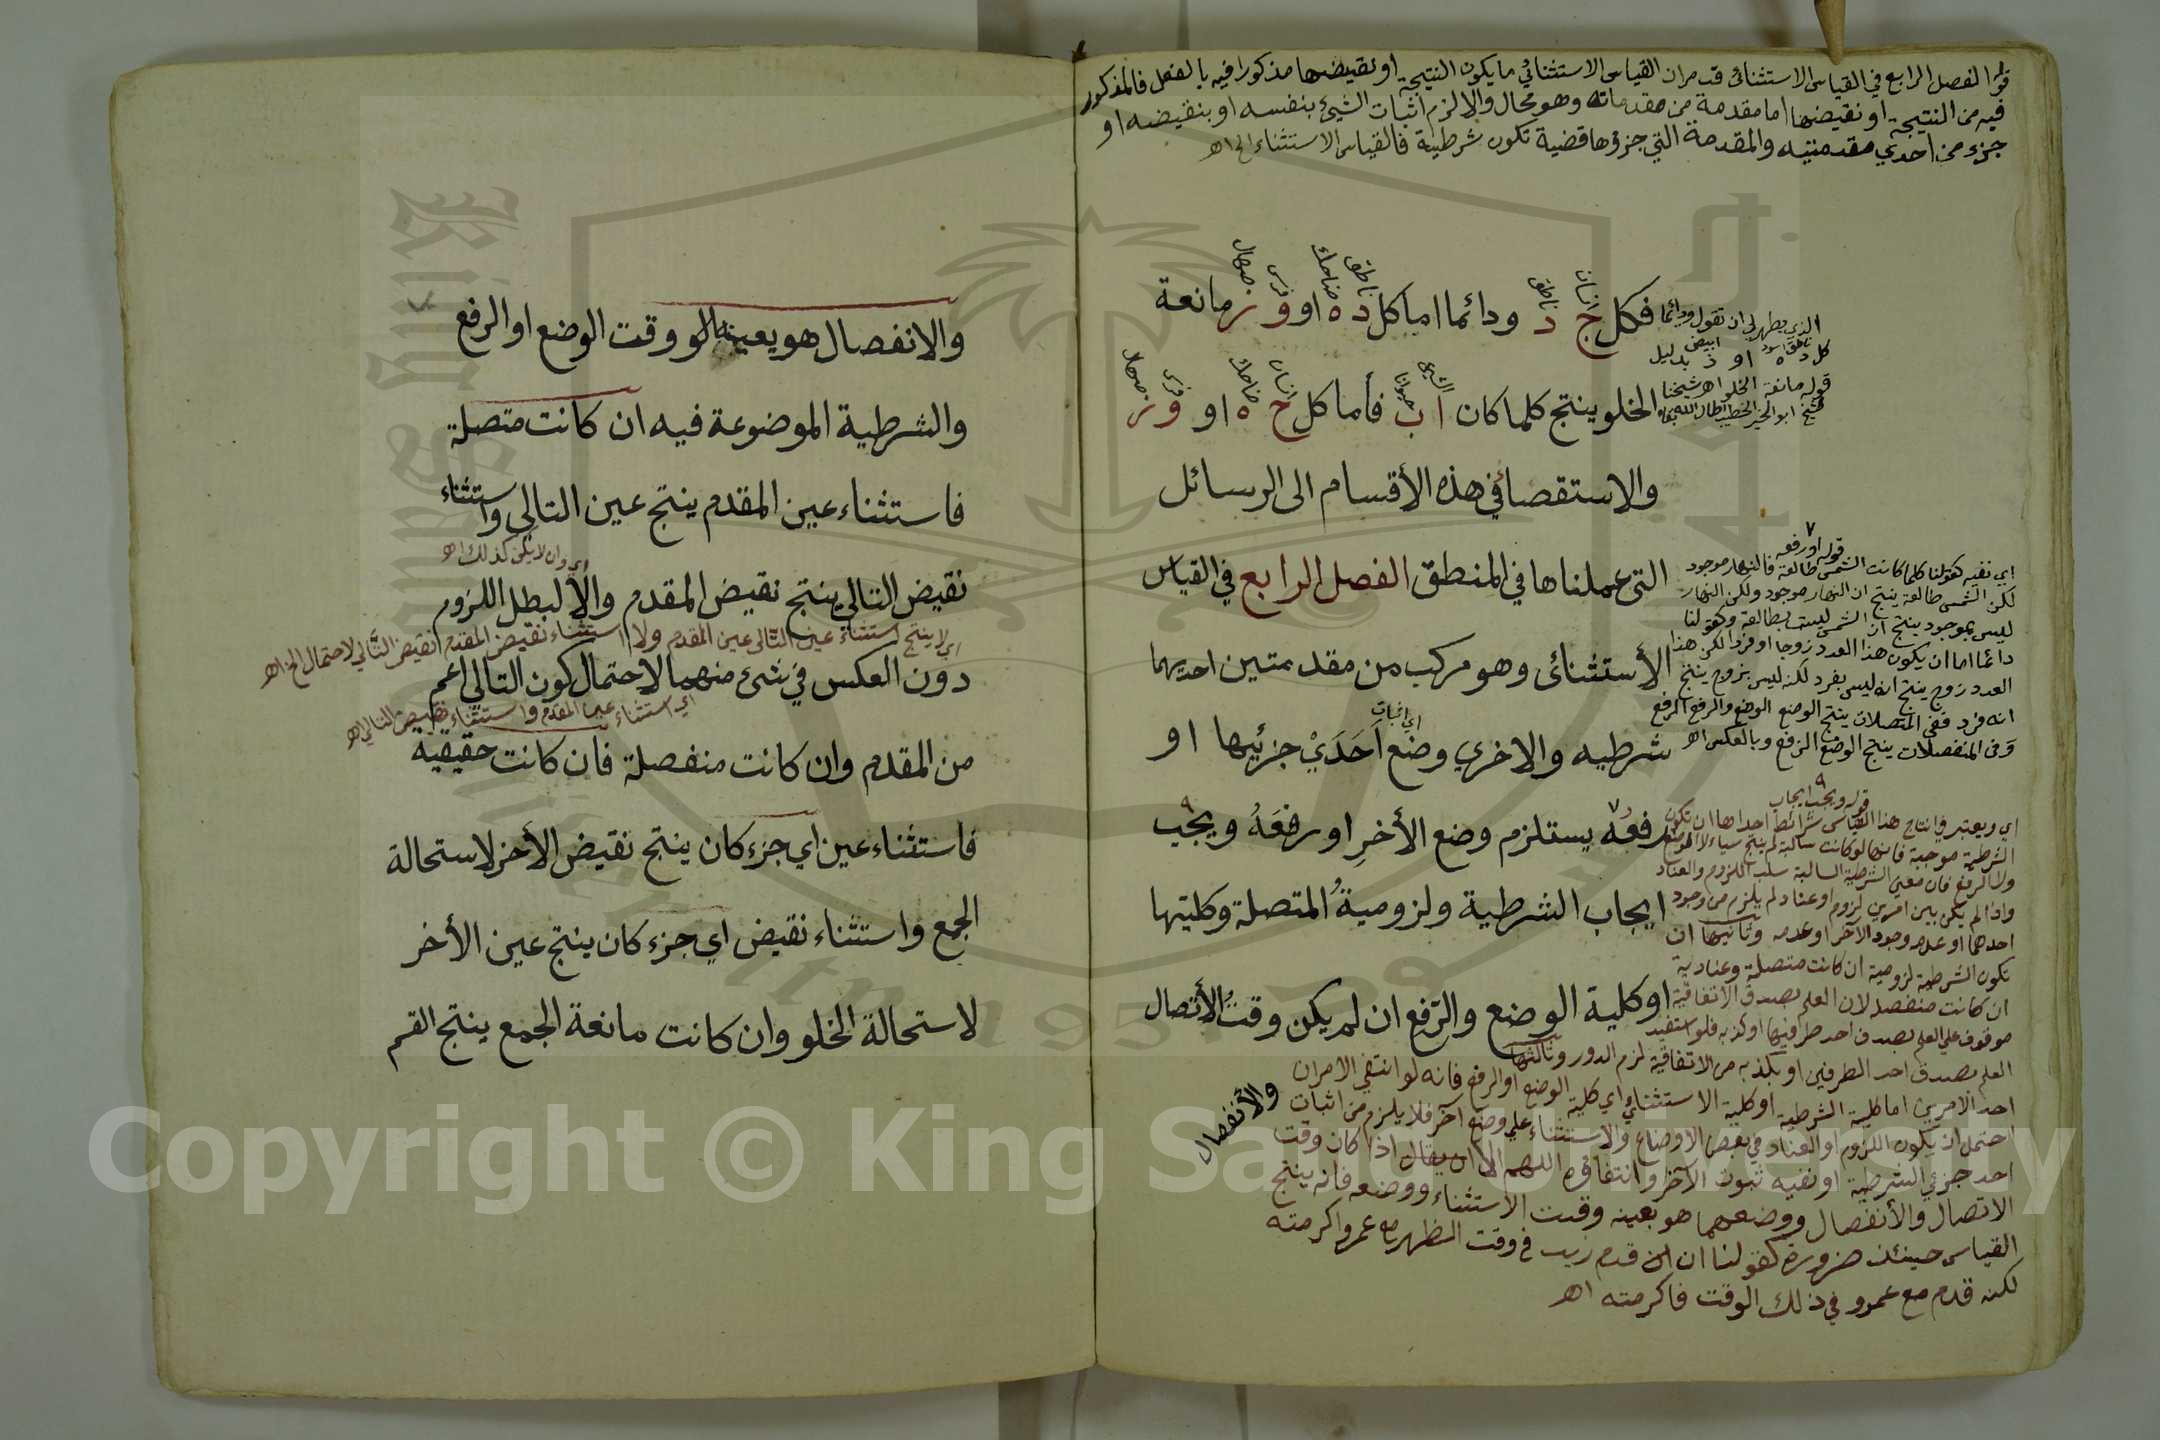 قوله الفصل الرابع في القياس الاستثنائى قد مر ان القياس الاستثنائي ما يكون النتيجة او نقيضها مذكورا فيه بالفعل فالمذكور
فيه من النتيجة او نقيضها اما مقدمة من مقدماته وهو محال والا لزم اثبات الشيئ بنفسه او بنقيضه او
جزء من احدي مقدمتيه والمقدمة التي جزؤها قضية تكون شرطية فالقياس الاستثناء الخ اه
فكل ج د ودائما اما كل د ه او و ز مانعة
انسان ناطق ناطق ضاحك فرس صهال
الذي يظهر لى ان تقول ودائما
كل د ه او ذ بدليل
ناطق اسود ابيض
قوله مانعة الخلو اه شيخنا
شيخ ابو الخير الخطيب اطال الله بقاه
الخلو ينتج كلما كان ا ب فأما كل ج ه او و ز
والاستقصا في هذه الأقسام الى الرسائل
التى عملناها في المنطق الفصل الرابع في القياس
الأستثنائى وهو مركب من مقدمتين احديهما
شرطيه والاخري وضع اَحَدَيْ جزئيها او
اي اثبات
رفعهُ يستلزم وضع الأخرِ او رفعَهُ ويجب
ايجاب الشرطية ولزوميةُ المتصلة وكليتها
او كلية الوضع والرّفع ان لم يكن وقتُ الأتصال
والأنفصال
٧ قوله او رفعه
اي نفيه كقولنا كلما كانت الشمس طالعة فالنهار موجود
لكن الشمس طالعة ينتج ان النهار موجود ولكن النهار
ليس بموجود ينتج ان الشمس ليست بطالعة وكقولنا
دائما اما ان يكون هذا العدد زوجا او فردا لكن هذا
العدد زوج ينتج انه ليس بفرد لكنه ليس بزوج ينتج
انه فرد ففي المتصلات ينتج الوضع الوضع والرفع الرفع
وفى المنفصلات ينتج الوضع الرفع وبالعكس اه
٩ قوله ويجب ايجاب
اي ويعتبر في انتاج هذا القياس شرائط احداها ان تكون
الشرطية موجبة فانها لو كانت سالبة لم ينتج شياء لا الوضع
ولا الرفع فان معنى الشرطية السالبة سلب اللزوم والعناد
واذا لم يكن بين امرين لزوم او عناد لم يلزم من وجود
احدهما او عدمه وجود الآخر او عدمه وثانيها ان
تكون الشرطية لزومية ان كانت متصلة وعنادية
ان كانت منفصلة لان العلم بصدق الاتفاقية
موقوف علي العلم بصدق احد طرفيها او كذبه فلو استفيد
العلم بصدق احد الطرفين او بكذبه من الاتفاقية لزم الدور وثالثها
احد الامرين اما كلية الشرطية او كلية الاستثناء اي كلية الوضع او الرفع فانه لو انتفي الامران
احتمل ان يكون اللزوم او العناد في بعض الاوضاع والاستثناء علي وضع آخر فلا يلزم من اثبات
احد جزئي الشرطية او نفيه ثبوت الآخر وانتفاؤه اللهم الا ان يقال اذا كان وقت
الاتصال والأنفصال ووضعهما هو بعينه وقت الاستثناء ووضعه فانه ينتج
القياس حينئذ ضرورة كقولنا ان قدم زيد في وقت الظهر مع عمرو اكرمته
لكنه قدم مع عمرو في ذلك الوقت فاكرمته اه
والانفصال هو بعينه وقت الوضع او الرفع
والشرطية الموضوعة فيه ان كانت متصلة
فاستثناء عين المقدم ينتج عين التالي واستثناء
اي وان لا يكن كذلك اه
نقيض التالي ينتج نقيض المقدم والا لبطل اللزوم
اي لا ينتج استثناء عين التّالى عين المقدم ولا استثناء نقيض المقدم نقيض التّالي لاحتمال الخ اه
دون العكس في شئ منهما لاحتمال كون التالي اعم
اي استثناء عين المقدم واستثناء نقيض التالي اه
من المقدم وان كانت منفصلة فان كانت حقيقية
فاستثناء عين اي جزء كان ينتج نقيض الأخر لاستحالة
الجمع واستثناء نقيض اي جزء كان ينتج عين الأخر
لاستحالة الخلو وان كانت مانعة الجمع ينتج القسم
Copyright © King Saud University